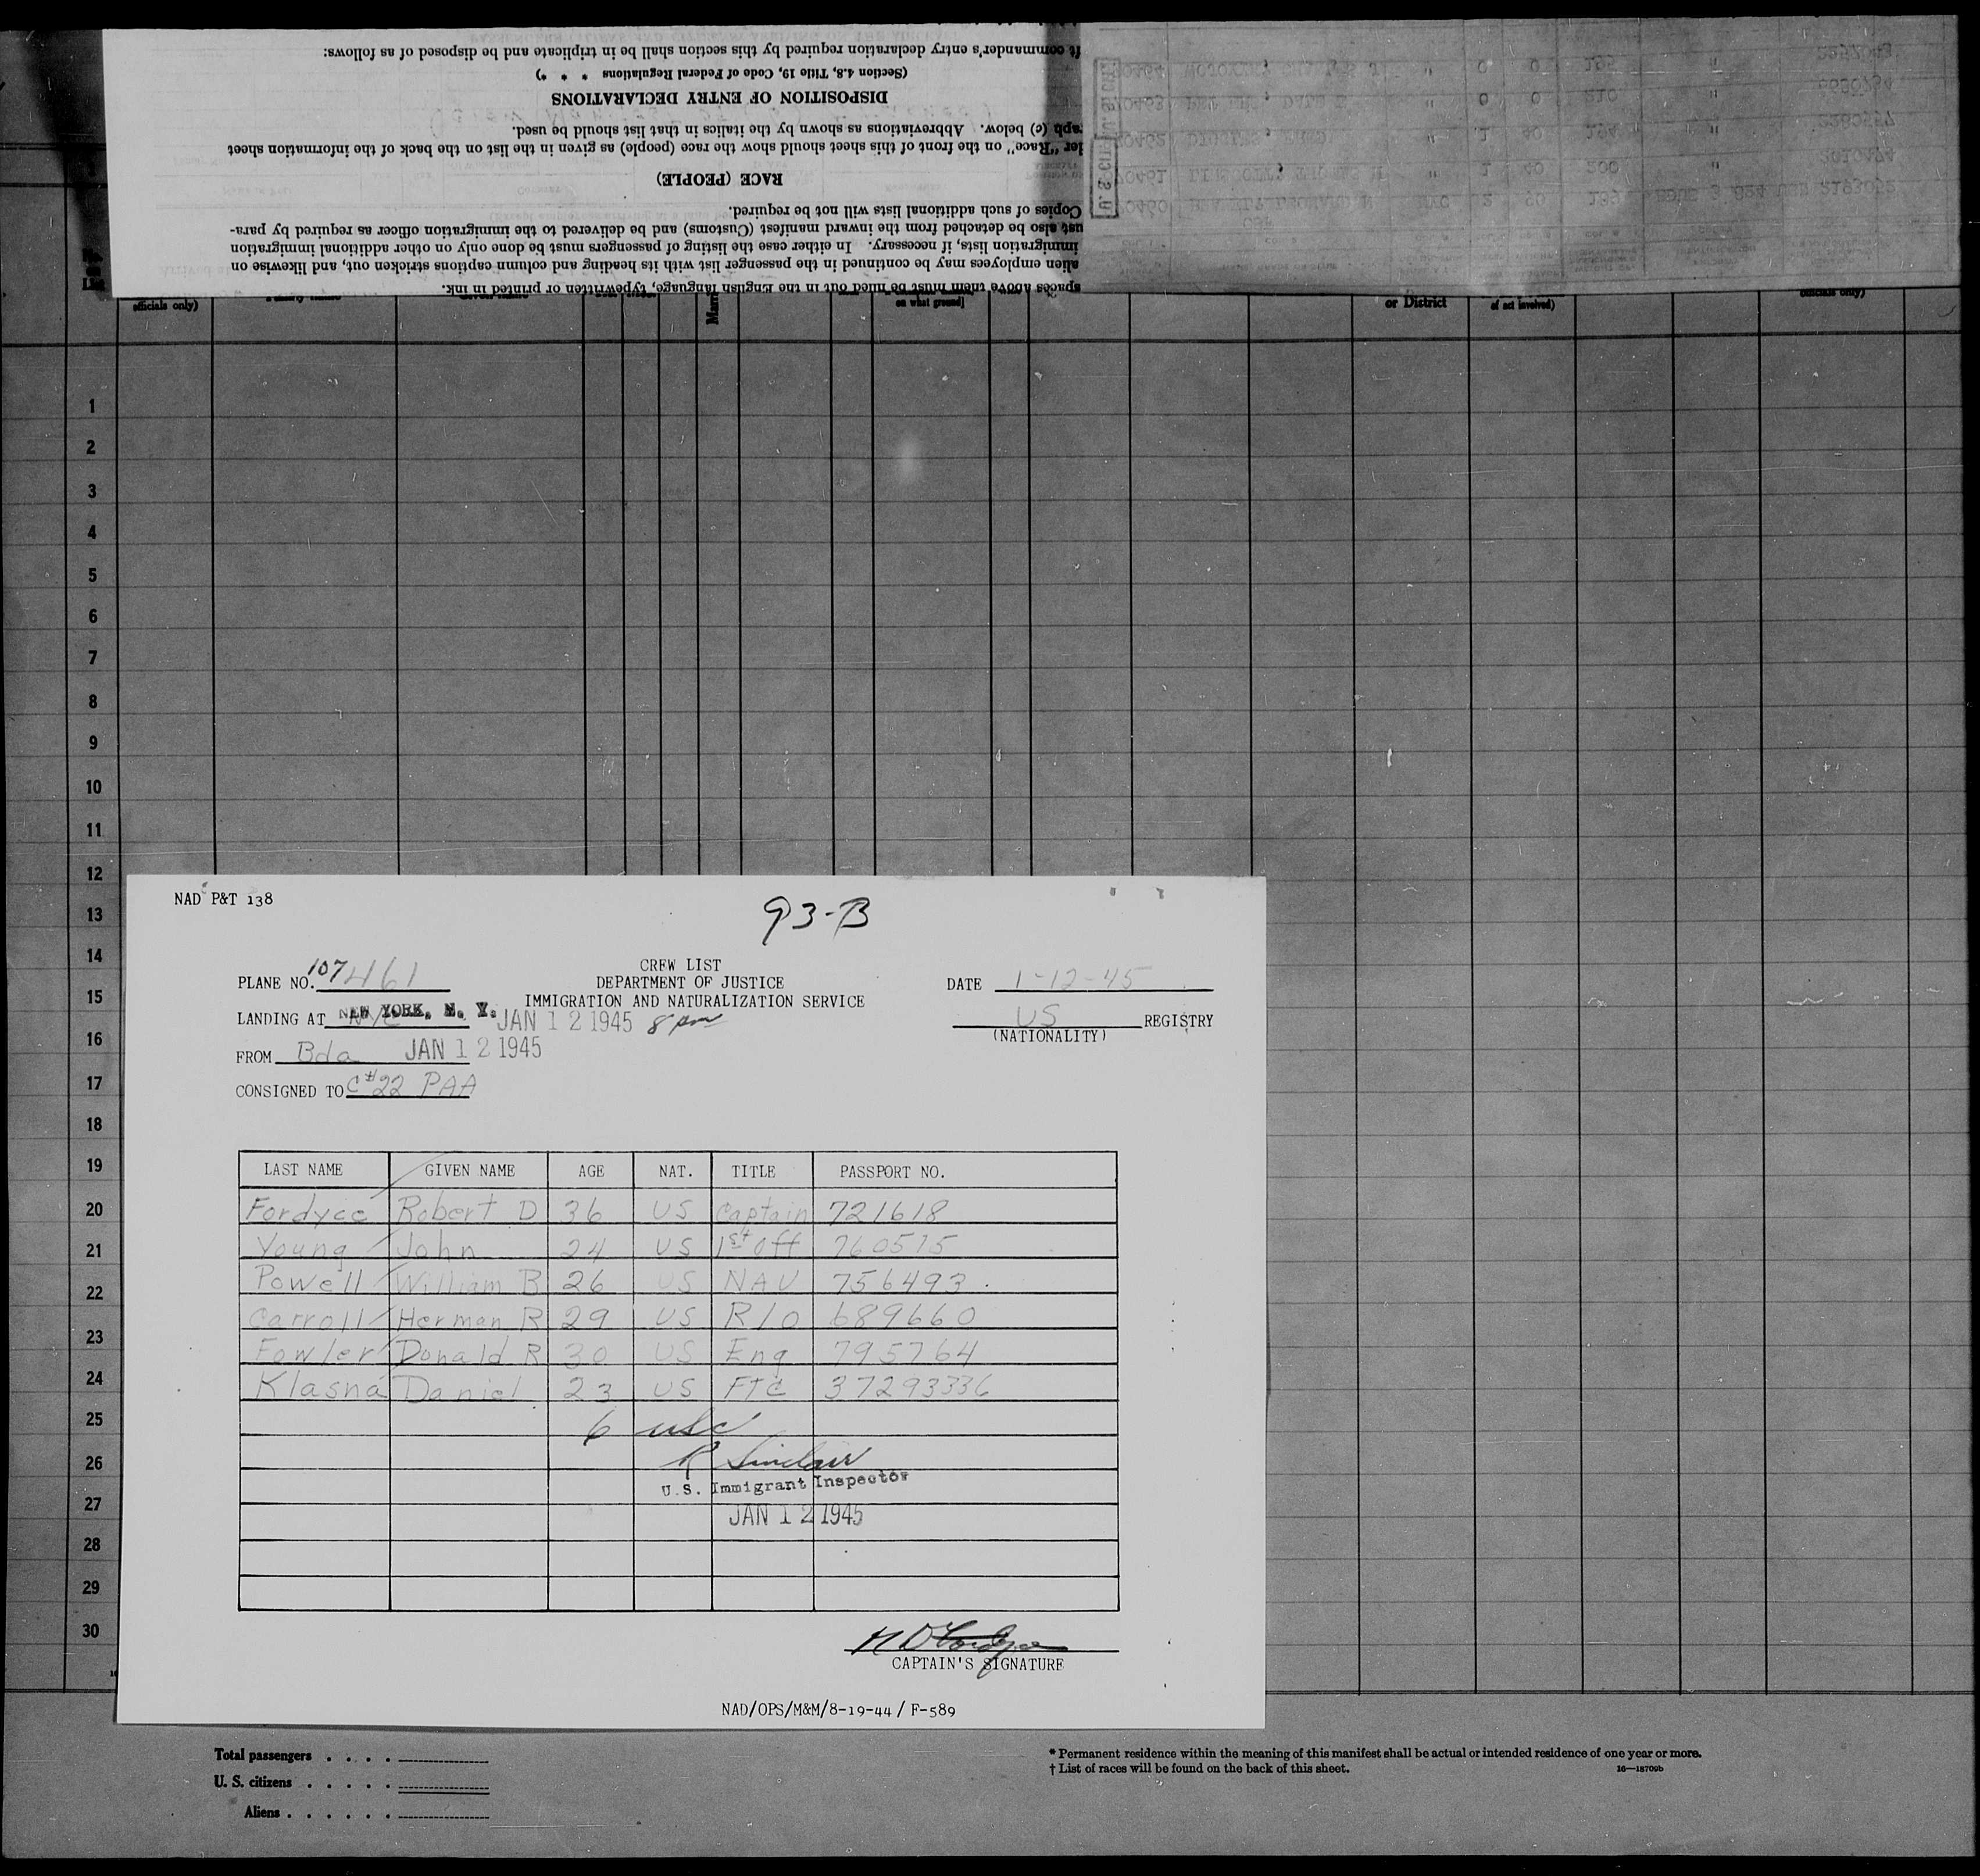 ft commander's entry declaration required by this section shall be in triplicate and be disposed of as follows:
(Section 4.8, Title 19, Code of Federal Regulations * * *)
DISPOSITION OF ENTRY DECLARATIONS
aph (c) below. Abbreviations as shown by the italics in that list should be used.
der "Race" on the front of this sheet should show the race (people) as given in the list on the back of the information sheet
RACE (PEOPLE)
Copies of such additional lists will not be required.
ust also be detached from the inward manifest (Customs) and be delivered to the immigration officer as required by para-
immigration lists, if necessary. In either case the listing of passengers must be done only on other additional immigration
alien employees may be continued in the passenger list with its heading and column captions stricken out, and likewise on
spaces above them must be filled out in the English language, typewritten or printed in ink.
officials only) on what ground] or District of act involved) officials only)
1
2
3
4
5
6
7
8
9
10
11
12
13
14
15
16
17
18
19
20
21
22
23
24
25
26
27
28
29
30
NAD P&T 138
93-B
CREW LIST
PLANE NO. 107461 DEPARTMENT OF JUSTICE DATE 1-12-45
IMMIGRATION AND NATURALIZATION SERVICE
LANDING AT NEW YORK, N. Y. JAN 12 1945 8 pm US REGISTRY
(NATIONALITY)
FROM Bda JAN 12 1945
CONSIGNED TO C#22 PAA
LAST NAME GIVEN NAME AGE NAT. TITLE PASSPORT NO.
Fordyce Robert D 36 US Captain 721618
Young John 24 US 1st Off 760515
Powell William B 26 US NAV 756493
Carroll Herman R 29 US R/O 689660
Fowler Donald R 30 US Eng 795764
Klasna Daniel 23 US FTC 37293336
6 usc
R Sinclair
U.S. Immigrant Inspector
JAN 12 1945
R D Fordyce
CAPTAIN'S SIGNATURE
NAD/OPS/M&M/8-19-44 / F-589
Total passengers . . . .
U. S. citizens . . . . .
Aliens . . . . . .
* Permanent residence within the meaning of this manifest shall be actual or intended residence of one year or more.
† List of races will be found on the back of this sheet. 16—18709b